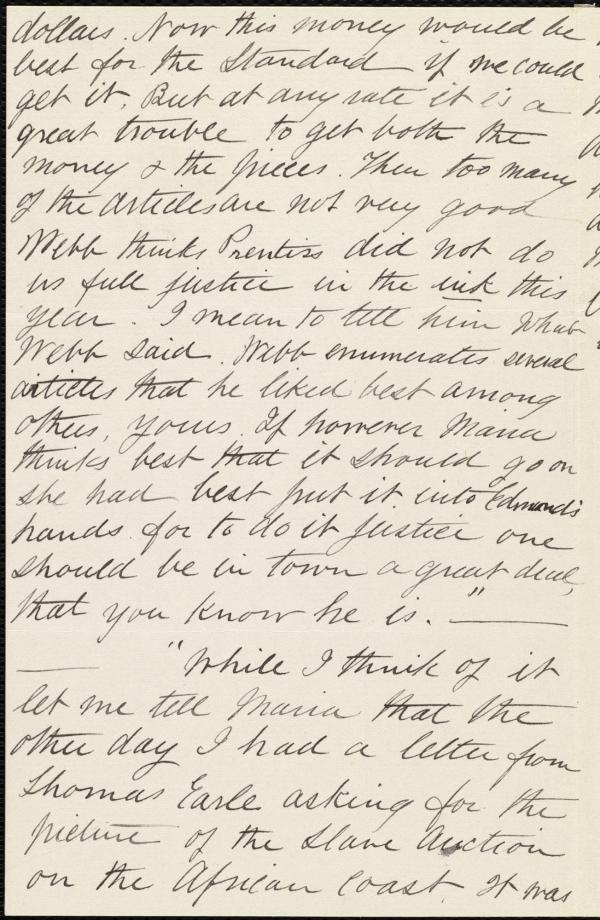 dollars. Now this money would be
best for the Standard if we could
get it. But at any rate it is a
great trouble to get both the
money & the pieces. Then too many
of the articles are not very good
Webb thinks Prentiss did not do
us full justice in the ink this
year. I mean to tell him what
Webb said. Webb enumerates several
articles that he liked best among
others, yours. If however Maria
thinks best that it should go on
she had best put it into Edmund's
hands for to do it justice one
should be in town a great deal,
that you know he is."
"While I think of it
let me tell Maria that the
other day I had a letter from
Thomas Earle asking for the
picture of the Slave Auction
on the African Coast. It was